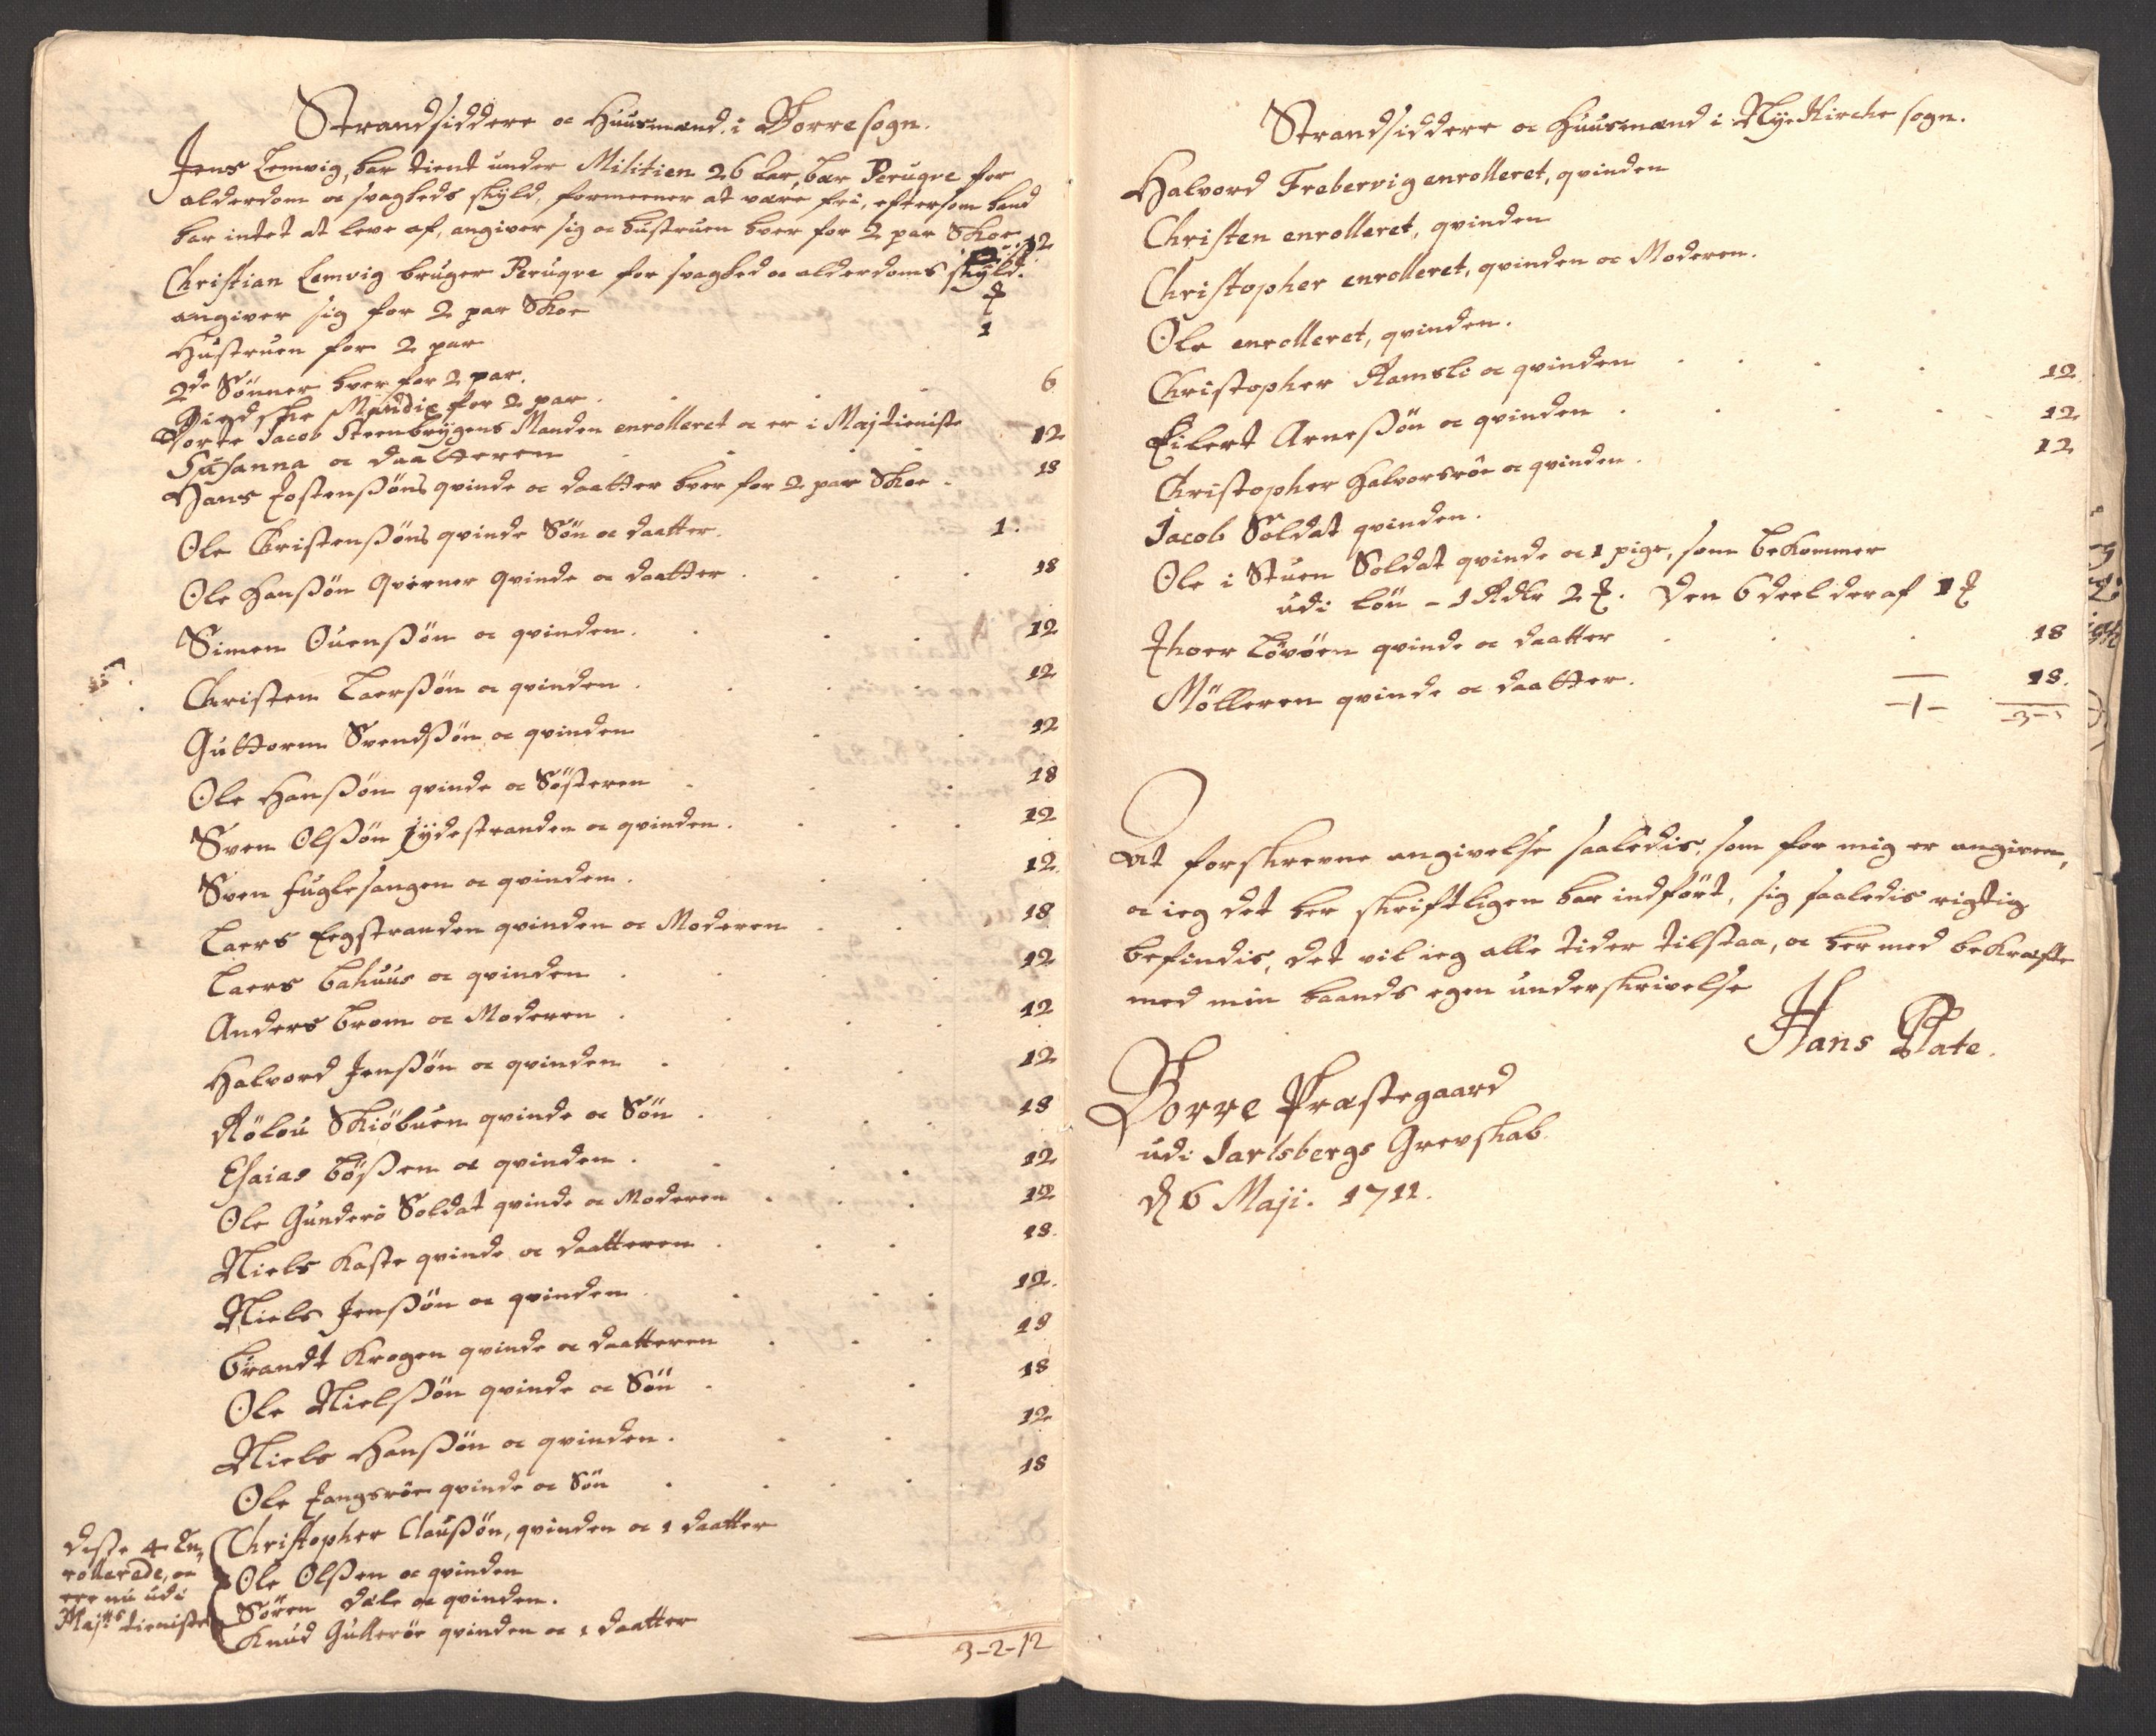 Strandsiddere oc Huusmænd i Borre sogn.
Jens Lemvig, har tient under Militien 26 aar, bær Peruqve for
alderdom oc svagheds skyld, formeener at være fri, eftersom hand
har intet at leve af, angiver sig oc hustruen hver for 2 par Skoe 12
Christian Lemvig bruger Peruqve for svaghed oc alderdoms skyld.
angiver sig for 2 par Skoe
Hustruen for 2 par 1
2de Sönner hver for 2 par.
for 2 par 6
Dorte Jacob Steenbrygens Manden enrolleret oc er i Maj tieniste
Susanna oc daatteren 12
Hans Jostensßöns qvinde oc daatter hver for 2 par Skoe 18
Ole Christensßöns qvinde Sön oc daatter. 1.
Ole Hansßön Qverner Qvinde oc daatter 18
Simen Ouensßön oc qvinden. 12
Christen Laersßön oc qvinden 12
Guttorm Svendsßön oc qvinden 12
Ole Hansßön qvinde oc Söster 18
Sven Olsßön Lydestranden oc qvinden. 12
Sven fuglesangen oc qvinden. 12
Laers Eegstranden qvinden oc Moderen 18
Laers bakuus oc qvinden 12
Anders brom oc Moderen 12
Halvord Jensßön oc qvinden 12
Rölou Skiöbuen qvinde oc Sön 18
Esaias bößen oc qvinden 12
Ole Gunderö Soldat qvinde oc Moderen 12
Niels Kaste qvinde oc daatteren 18
Niels Jensßön oc qvinden 12
brandt Krogen qvinde oc daatteren 18
Ole Nielsßön qvinde oc Sön 18
Niels Hansßön oc qvinden. 12
Ole Langsröe qvinde oc Sön 18
Christopher Clausßön, qvinden oc 1 daatter
Ole Olsßen oc qvinden
Sören Dale oc qvinden.
Knud Gulleröe qvinden oc 1 daatter
disse 4 En
rollerede, oc
ere nu udi
Majts tieniste
3-2-12
Strandsiddere oc Huusmænd i Nye Kirche sogn.
Halvord Frebervig enrolleret, qvinden
Christen enrolleret, qvinden
Christopher enrolleret, qvinden oc Moderen.
Ole enrolleret, qvinden.
Christopher Ramsli oc qvinden 12
Eilert Arnesßön oc qvinden 12
Christopher Halvorsröe oc qvinden. 12
Jacob Soldat qvinden.
Ole i Stuen Soldat qvinde oc 1 pige, som bekommer
udi lön - 1 Rdlr 2 . Den 6 deel deraf 1
Thoer Lövöen qvinde oc daatter 18
Mölleren qvinde oc daatter. 18.
-1- -3-
At forskrevne angivelse saaledis, som for mig er angiven,
oc ieg det her skriftligen har indfört, sig saaledis rigtig
befindis, det vil ieg alle tider tilstaa, oc her med bekræfte
med min haands egen underskrivelse
Hans Plate.
Borre Præstegaard
udi Jarlsbergs Grevskab.
d 6 Maji. 1711.